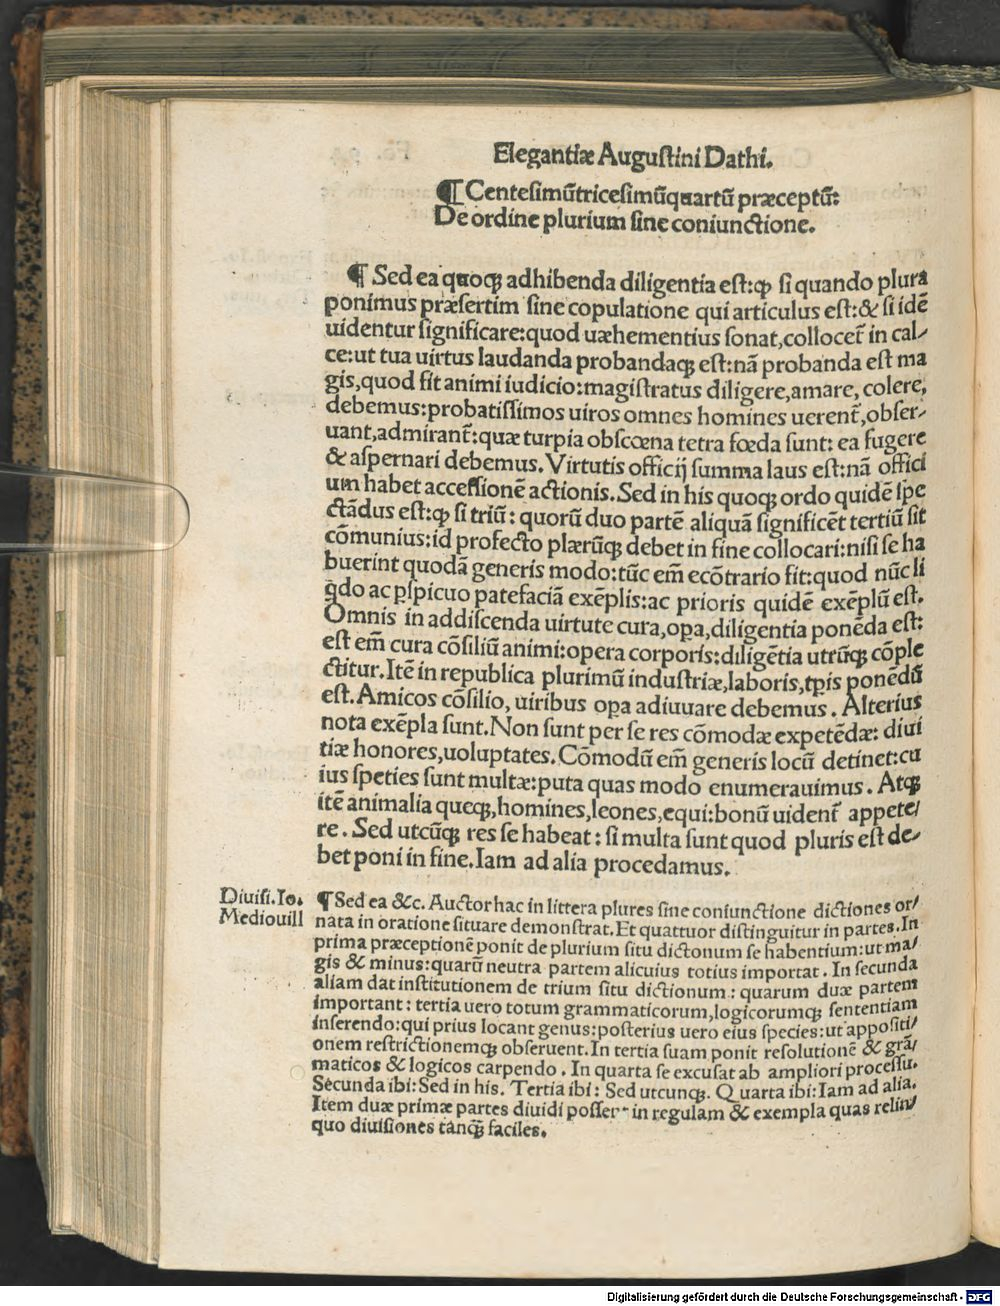 Elegantiæ Augustini Dathi.
¶ Centesimũtricesimũquartũ præceptũ:
De ordine plurium sine coniunctione.
¶ Sed ea quoqꝫ adhibenda diligentia est:ꝙ si quando plura
ponimus præsertim sine copulatione qui articulus est:& si idẽ
uidentur significare:quod uæhementius sonat,collocet̃ in cal⸗
ce:ut tua uirtus laudanda probandaqꝫ est:nã probanda est ma
gis,quod fit animi iudicio:magistratus diligere,amare, colere,
debemus:probatissimos uiros omnes homines uerent̃,obser⸗
uant,admirant̃:quæ turpia obscœna tetra fœda sunt: ea fugere
& aspernari debemus. Virtutis officij summa laus est:nã offici
um habet accessionẽ actionis. Sed in his quoqꝫ ordo quidẽ spe
ctãdus est:ꝙ si triũ: quorũ duo partẽ aliquã significẽt tertiũ sit
cõmunius:id profecto plærũqꝫ debet in fine collocari:nisi se ha
buerint quodã generis modo:tũc em̃ ecõtrario fit:quod nũc li
q̃do ac ꝑspicuo patefaciã exẽplis:ac prioris quidẽ exẽplũ est.
Omnis in addiscenda uirtute cura,oꝑa,diligentia ponẽda est:
est em̃ cura cõsiliũ animi:opera corporis:diligẽtia utrũqꝫ cõple
ctitur. Itẽ in republica plurimũ industriæ,laboris,tꝑis ponẽdũ
est. Amicos cõsilio, uiribus oꝑa adiuuare debemus. Alterius
nota exẽpla sunt. Non sunt per se res cõmodæ expetẽdæ: diui
tiæ honores,uoluptates. Cõmodũ em̃ generis locũ detinet:cu
ius speties sunt multæ:puta quas modo enumerauimus. Atqꝫ
itẽ animalia queqꝫ,homines,leones,equi:bonũ uident̃ appete⸗
re. Sed utcũqꝫ res se habeat: si multa sunt quod pluris est de⸗
bet poni in fine. Iam ad alia procedamus.
Diuisi. Io.
Mediouill
¶ Sed ea &c. Auctor hac in littera plures sine coniunctione dictiones or⸗
nata in oratione situare demonstrat. Et quattuor distinguitur in partes. In
prima præceptionẽ ponit de plurium situ dictonum se habentium:ut ma⸗
gis & minus:quarũ neutra partem alicuius totius importat. In secunda
aliam dat institutionem de trium situ dictionum: quarum duæ partem
important: tertia uero totum grammaticorum,logicorumqꝫ sententiam
inferendo:qui prius locant genus:posterius uero eius species:ut appositi⸗
onem restrictionemqꝫ obseruent. In tertia suam ponit resolutionẽ & grã⸗
maticos & logicos carpendo. In quarta se excusat ab ampliori processu.
Secunda ibi:Sed in his. Tertia ibi: Sed utcunqꝫ. Quarta ibi:Iam ad alia.
Item duæ primæ partes diuidi in regulam & exempla quas relin⸗
quo diuisiones tanqꝫ̃ faciles.
Digitalisierung gefördert durch die Deutsche Forschungsgemeinschaft - DFG